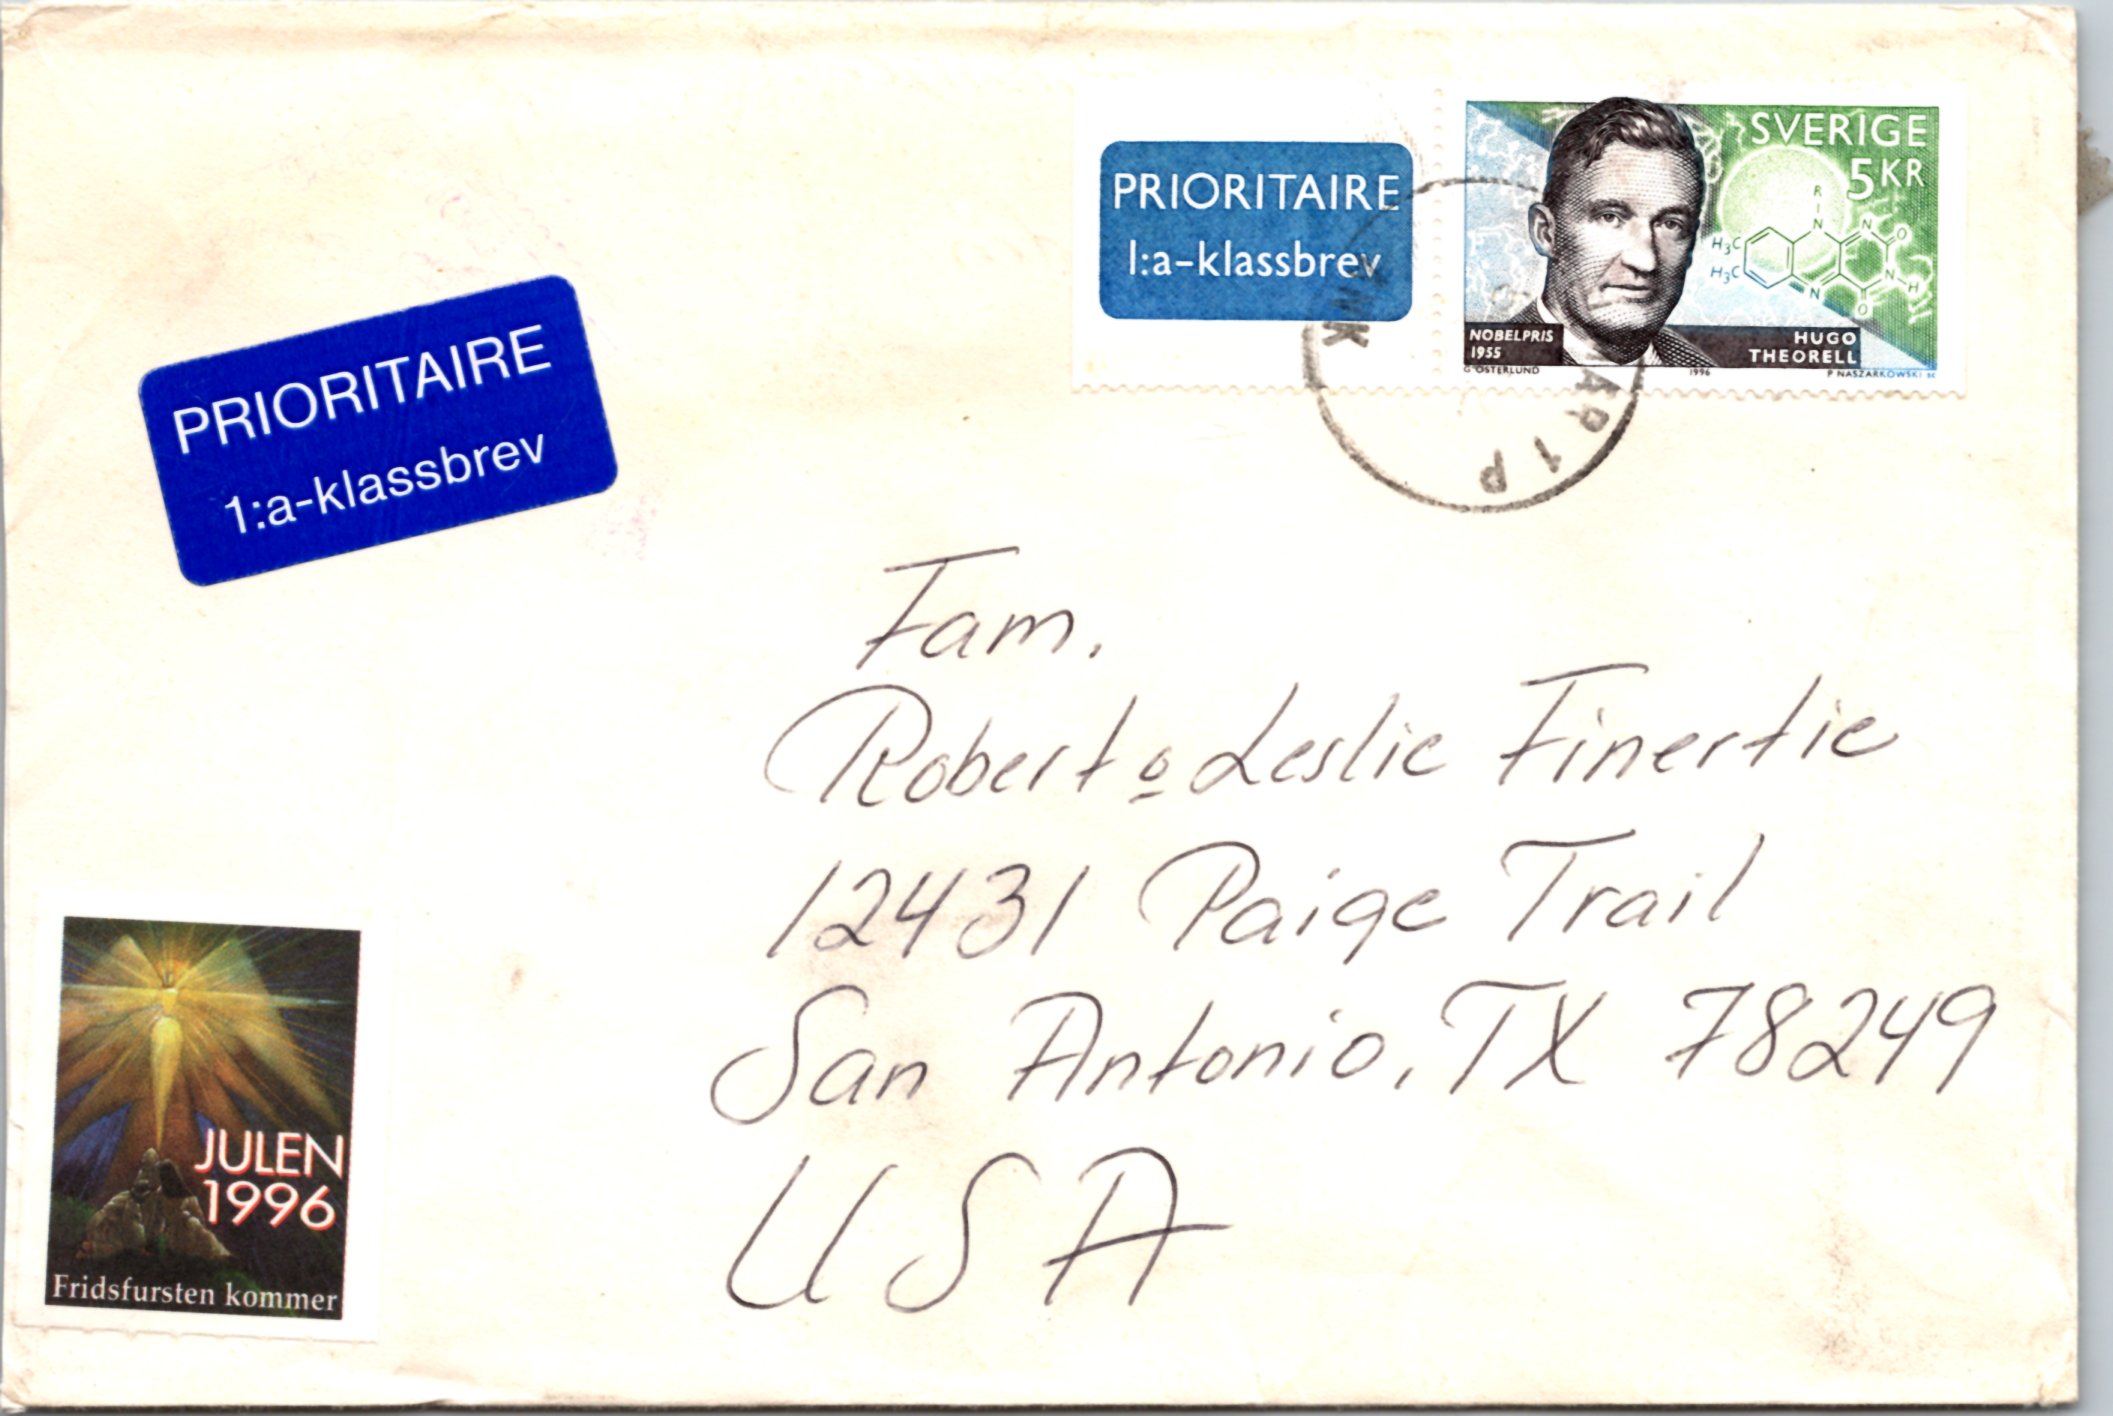 PRIORITAIRE
1:a-klassbrev
SVERIGE
5 KR
R
N
N
O
H₃C
H₃C
N
H
N
O
NOBELPRIS
1955
HUGO
THEORELL
G ÖSTERLUND
1996
P NASZARKOWSKI SC
PRIORITAIRE
1:a-klassbrev
Fam.
Robert o Leslie Finertie
12431 Paige Trail
San Antonio, TX 78249
USA
JULEN
1996
Fridsfursten kommer